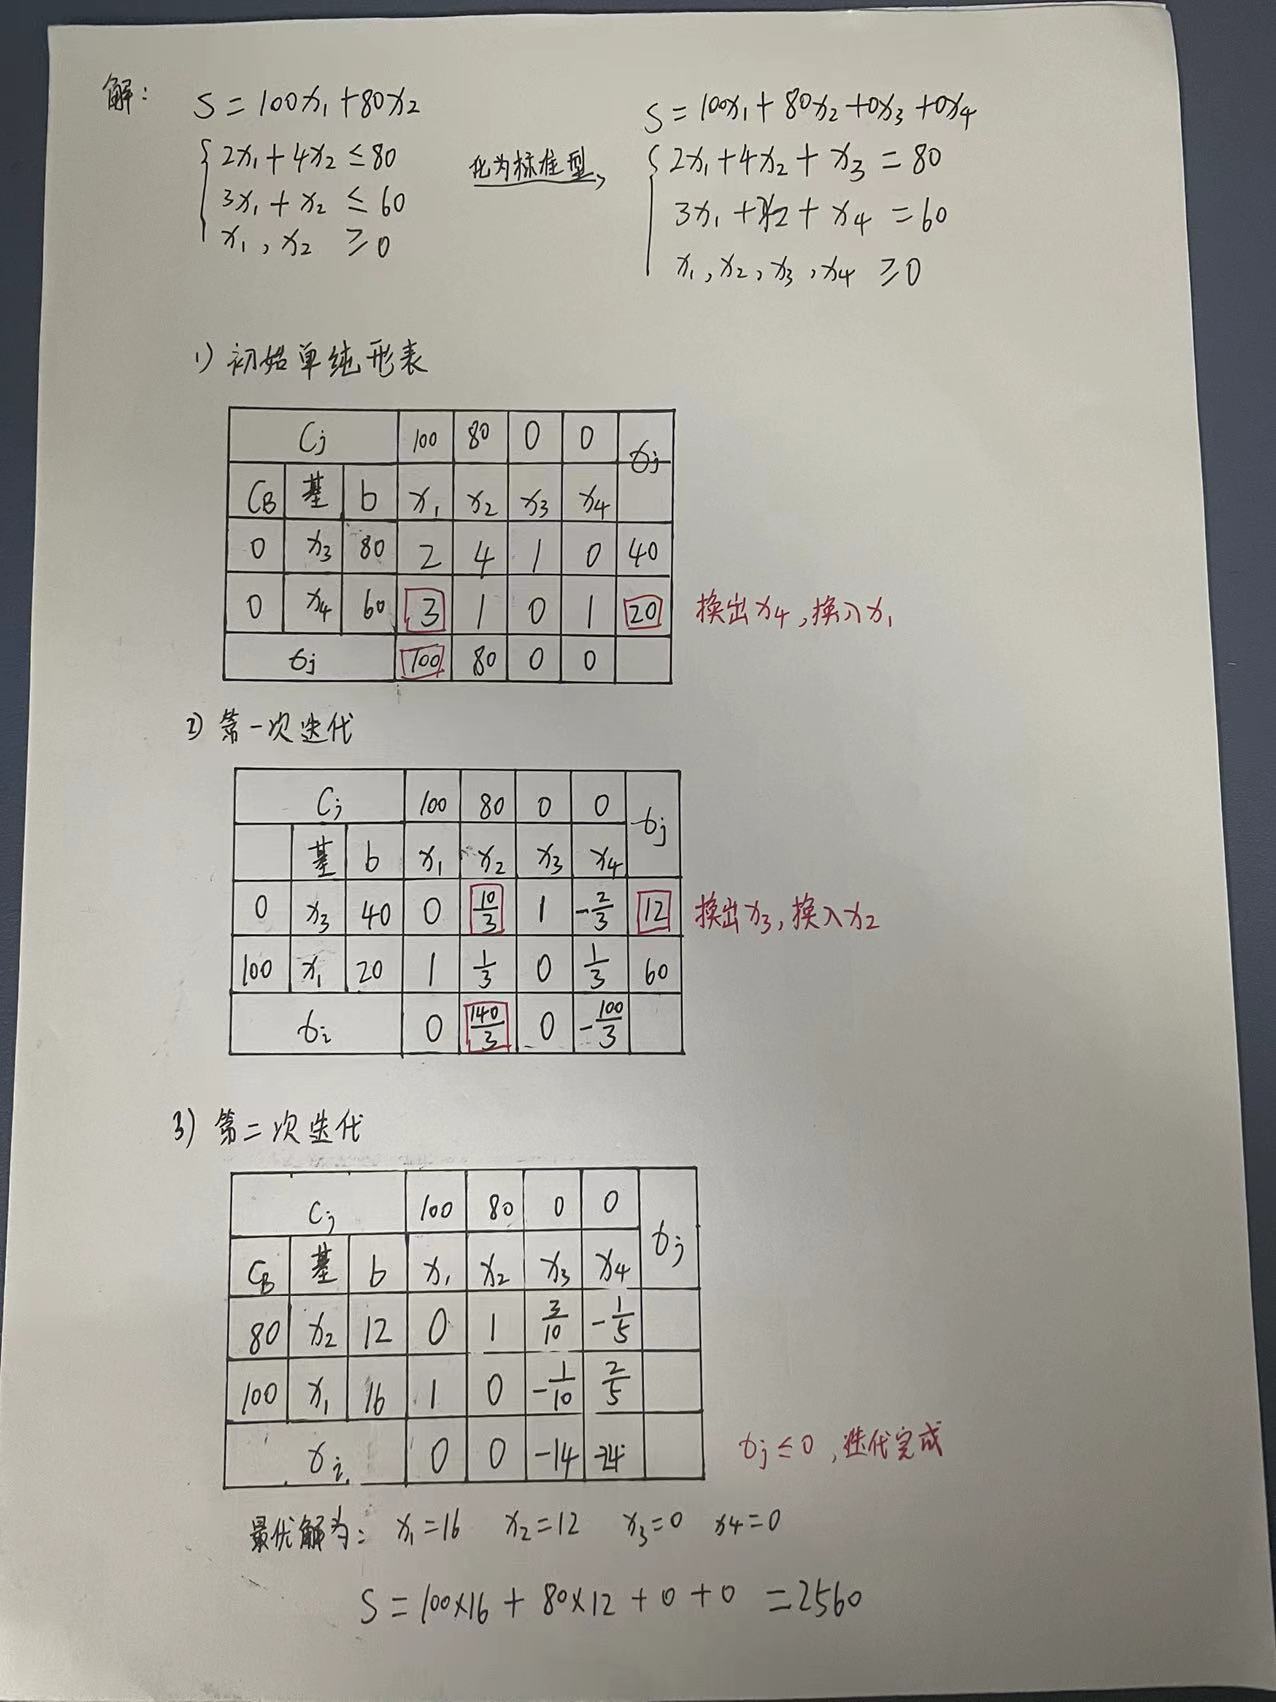 解：
S=100x₁+80x₂
2x₁+4x₂≤80
3x₁+x₂≤60
x₁,x₂≥0
化为标准型
S=100x₁+80x₂+0x₃+0x₄
2x₁+4x₂+x₃=80
3x₁+x₂+x₄=60
x₁,x₂,x₃,x₄≥0
1) 初始单纯形表
Cj 100 80 0 0 σj
CB 基 b x₁ x₂ x₃ x₄
0 x₃ 80 2 4 1 0 40
0 x₄ 60 3 1 0 1 20 换出x₄,换入x₁
σj 100 80 0 0
2) 第一次迭代
Cj 100 80 0 0 σj
基 b x₁ x₂ x₃ x₄
0 x₃ 40 0 10/3 1 -2/3 12 换出x₃,换入x₂
100 x₁ 20 1 1/3 0 1/3 60
σi 0 140/3 0 -100/3
3) 第二次迭代
Cj 100 80 0 0 σj
CB 基 b x₁ x₂ x₃ x₄
80 x₂ 12 0 1 3/10 -1/5
100 x₁ 16 1 0 -1/10 2/5
σi 0 0 -14 -24 σj≤0,迭代完成
最优解为: x₁=16 x₂=12 x₃=0 x4=0
S=100×16+80×12+0+0=2560